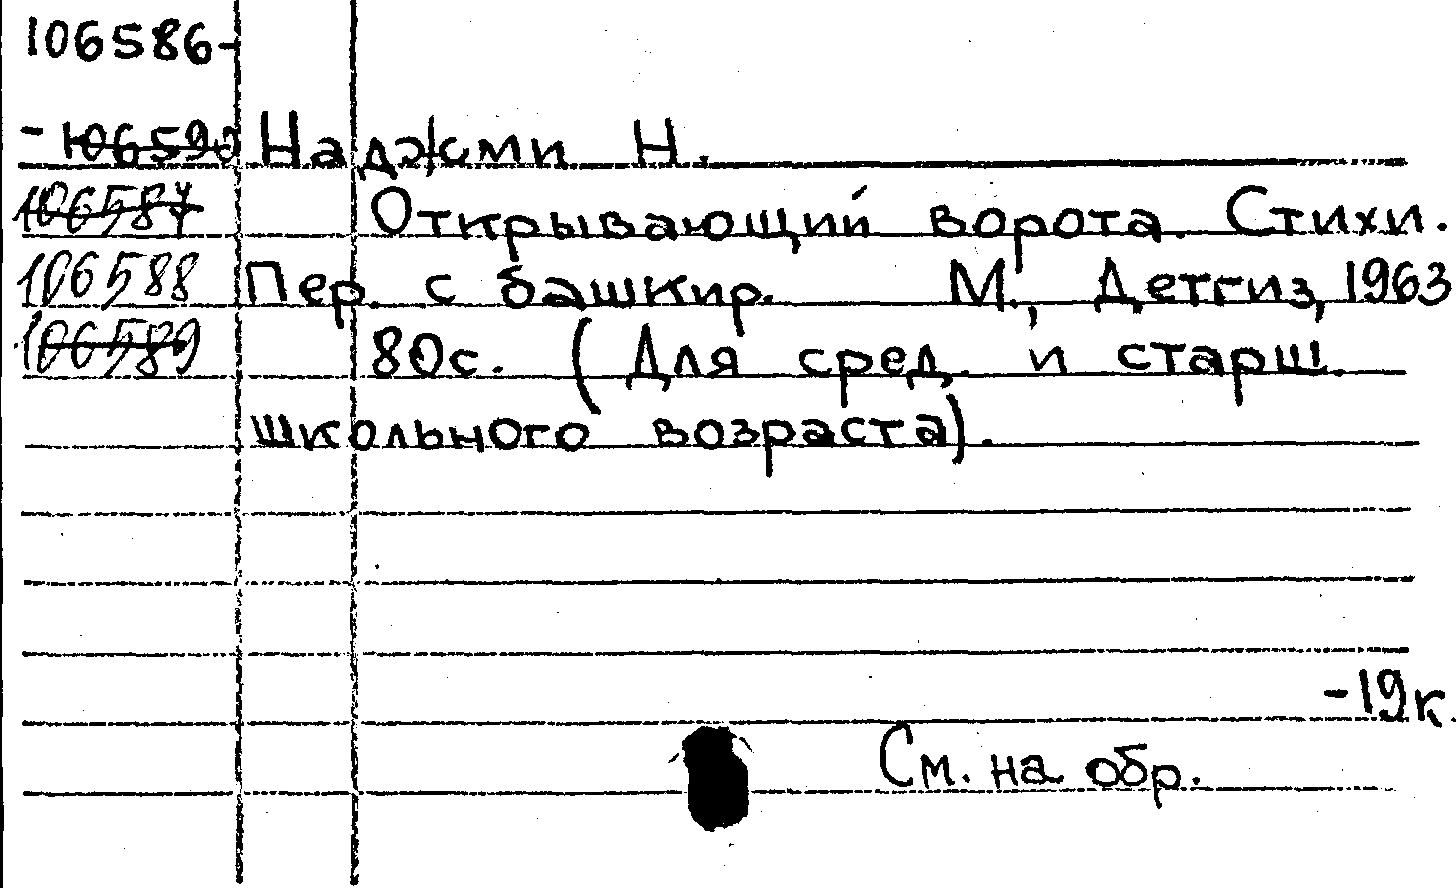 106586-
-106590 Наджми Н.
106587 Открывающий ворота. Стихи.
106588 Пер. с башкир. М., Детгиз, 1963
106589 80с. (Для сред. и старш.
школьного возраста).
-19к.
См. на обр.